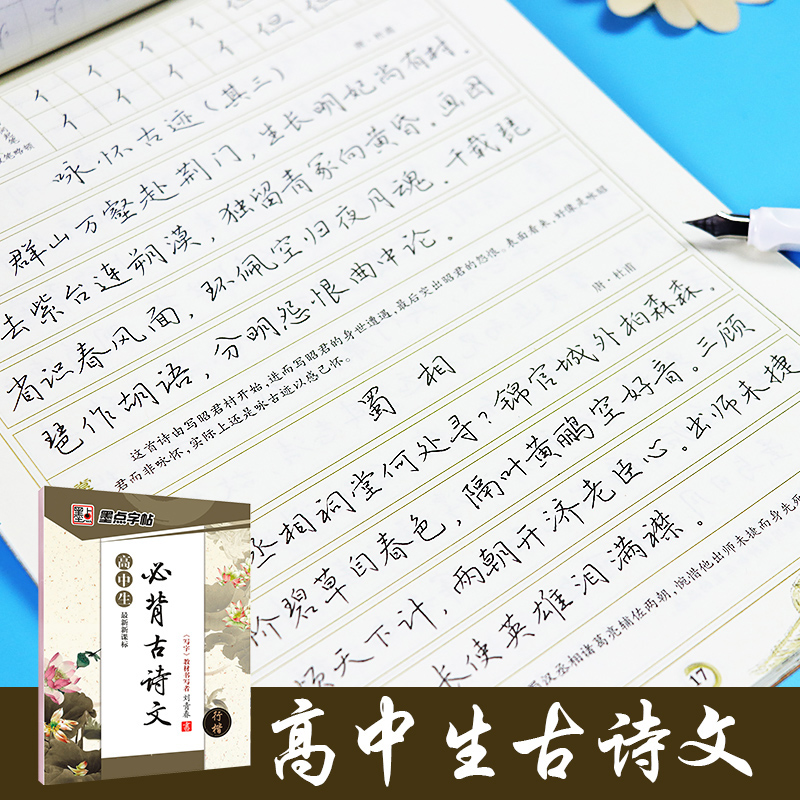 但
但
但
亻 亻 亻 亻
亻 亻 亻 亻
唐·杜甫
咏怀古迹(其三)
群山万壑赴荆门，生长明妃尚有村。
去紫台连朔漠，独留青冢向黄昏。画图
省识春风面，环佩空归夜月魂。千载琵
琶作胡语，分明怨恨曲中论。
这首诗由写昭君村开始，进而写昭君的身世遭遇，最后突出昭君的怨恨。表面看来，好像是咏昭
君而非咏怀，实际上还是咏古迹以感己怀。
唐·杜甫
蜀相
丞相祠堂何处寻？锦官城外柏森森。
阶碧草自春色，隔叶黄鹂空好音。三顾
频天下计，两朝开济老臣心。出师未捷
长使英雄泪满襟。
蜀汉丞相诸葛亮辅佐两朝，惋惜他出师未捷而身先死
17
墨点字帖
高中生
最新新课标
必背古诗文
《写字》教材书写者 刘青春 书
行楷
高中生古诗文